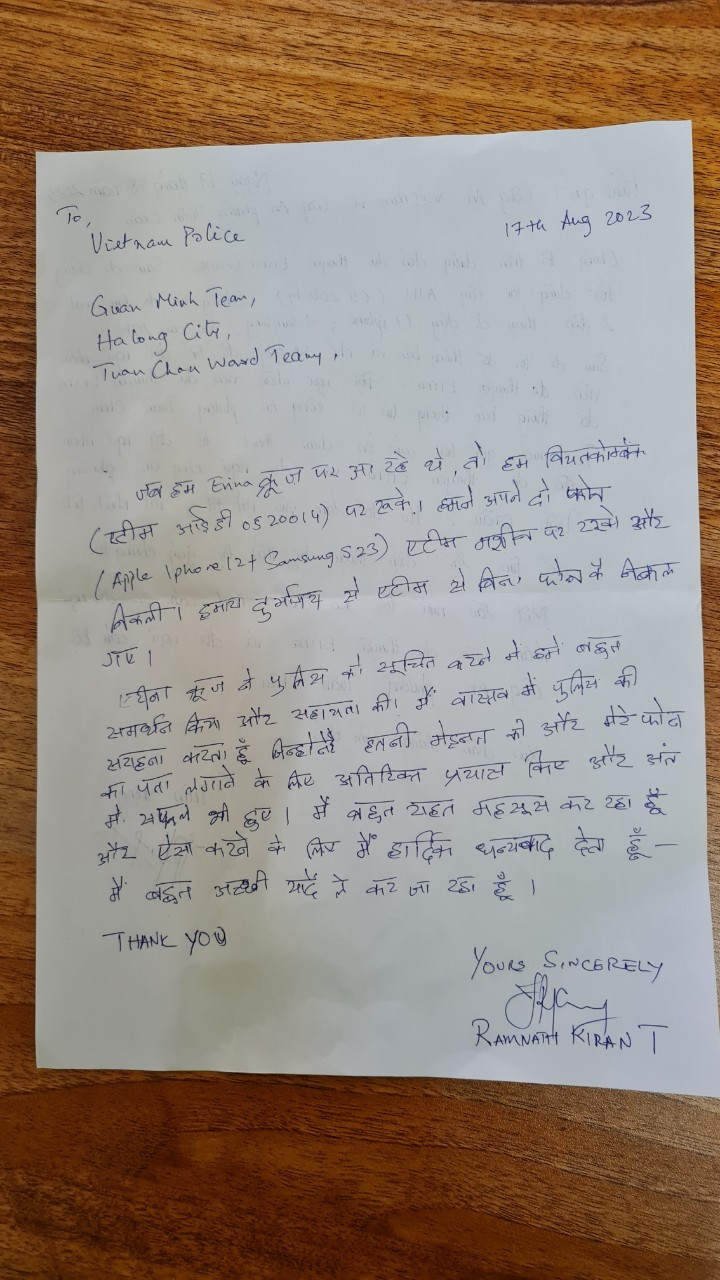 To,
Vietnam Police
17th Aug 2023
Guan Minh Team,
Halong City,
Tuan Chan Ward Teamy,
जब हम Erina क्रूज पर आ रहे थे, तो हम वियतकोमबैंक
(एटीम आईडी 0520014) पर रुके। हमने अपने दो फोन
(Apple Iphone 12 + Samsung S23) एटीम मशीन पर रखे और
निकली। हमारा दुर्भाग्य से एटीम से बिना फोन के निकल
गए।
एरीना क्रूज ने पुलिस को सूचित करने में हमें बहुत
समर्थन किया और सहायता की। मैं वास्तव में पुलिस की
सराहना करता हूँ जिन्होंने इतनी मेहनत की और मेरे फोन
का पता लगाने के लिए अतिरिक्त प्रयास किए और अंत
में सफल भी हुए। मैं बहुत राहत महसूस कर रहा हूँ
और ऐसा करने के लिए मैं हार्दिक धन्यवाद देता हूँ —
मैं बहुत अच्छी यादें ले कर जा रहा हूँ।
THANK YOU
YOURS SINCERELY
RAMNATH KIRAN T